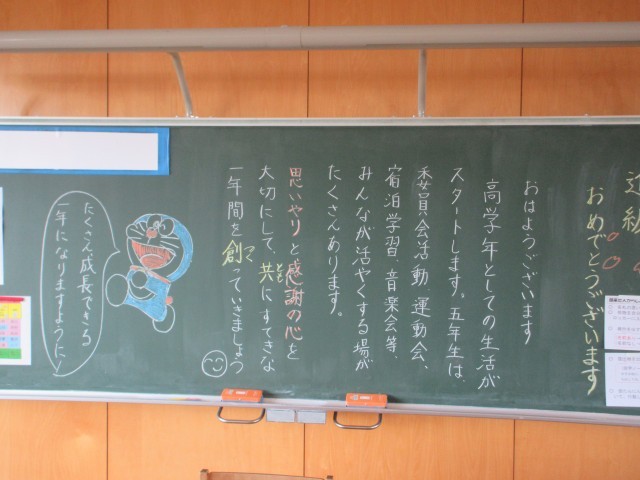 進級
おめでとうございます
おはようございます
高学年としての生活が
スタートします。五年生は、
委員会活動、運動会、
宿泊学習、音楽会等、
みんなが活やくする場が
たくさんあります。
思いやりと感謝の心を
大切にして、共にすてきな
一年間を創っていきましょう
たくさん成長できる
一年になりますように！